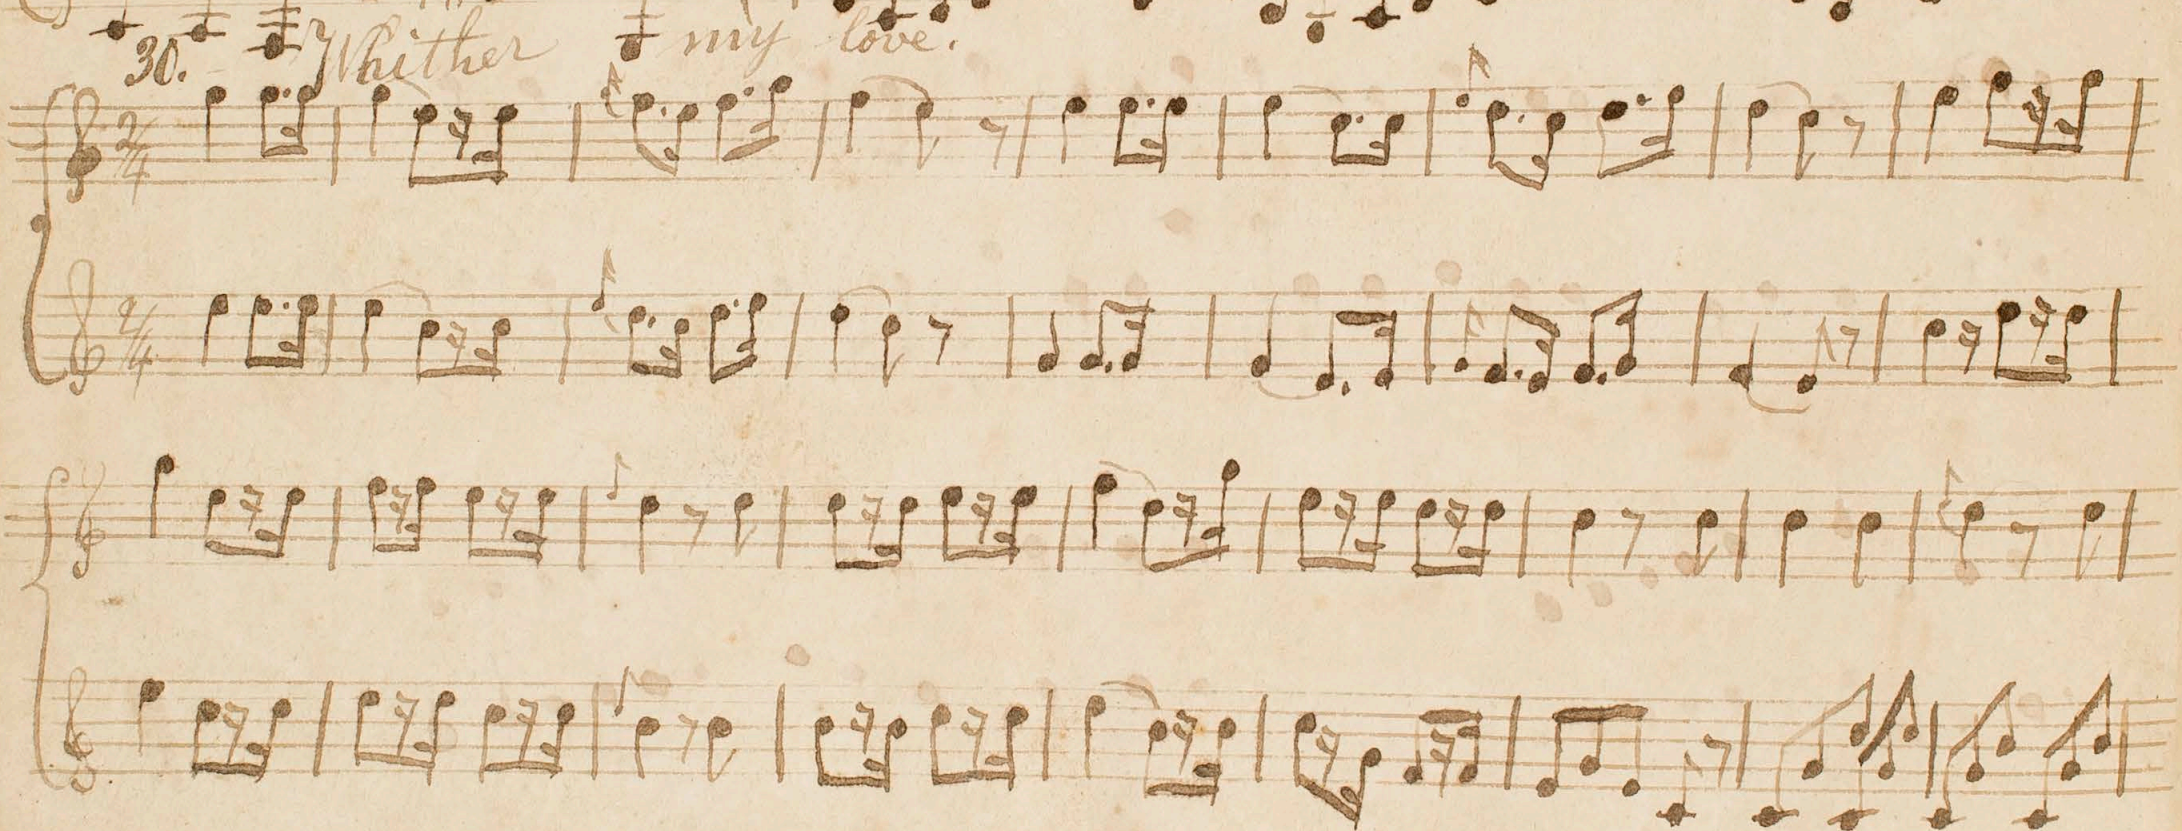 30. Whither my love.
2/4
2/4